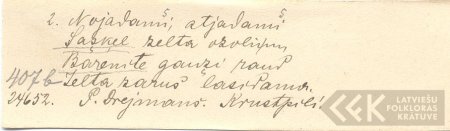 2. Nojādams, atjādams
Sašķeļ zelta ozoliņu.
Bārenīte gauži raud
407b Zelta zarus lasīdama.
24652. P. Drejmans. Krustpilī.
LATVIEŠU
FOLKLORAS
KRĀTUVE